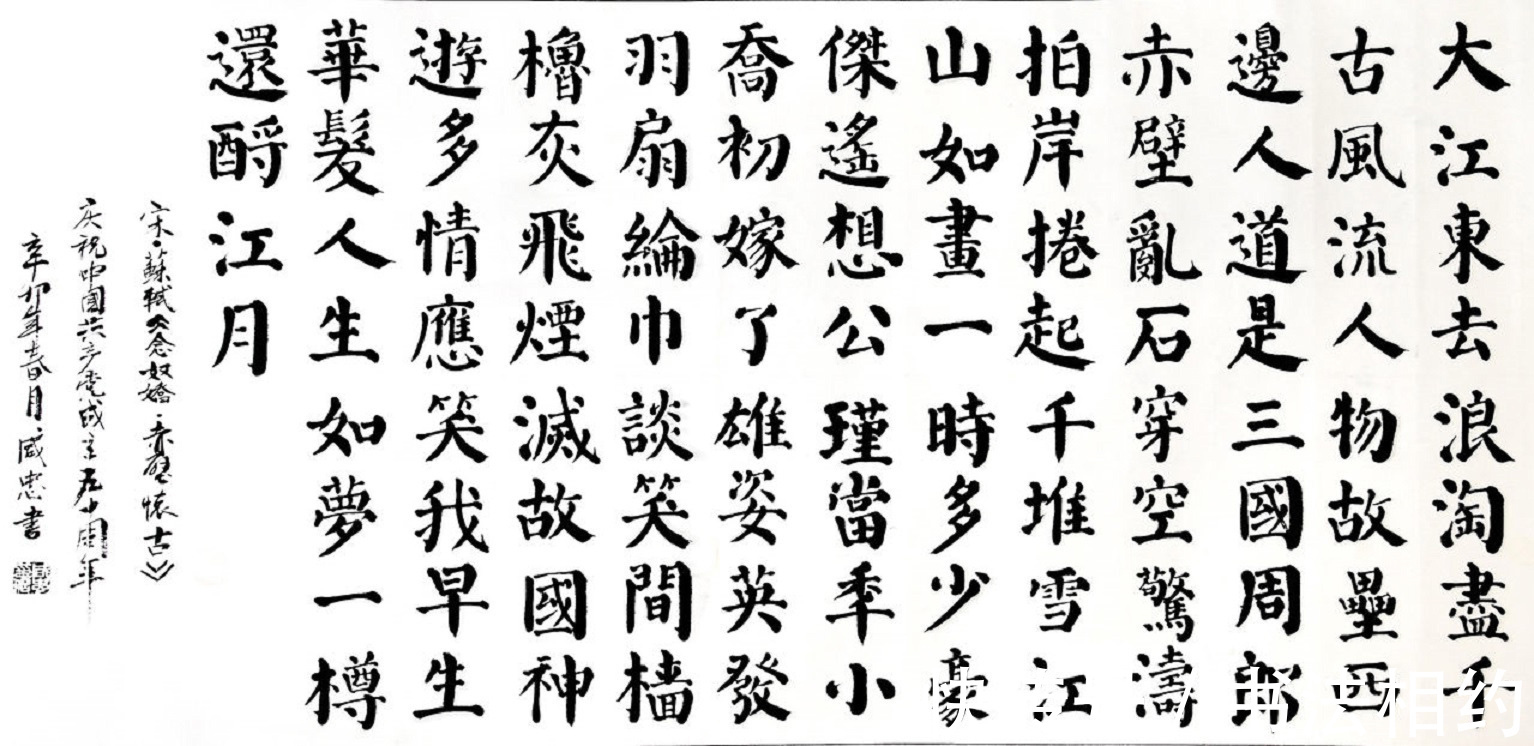 大江東去浪淘盡千
古風流人物故壘西
邊人道是三國周郎
赤壁亂石穿空驚濤
拍岸捲起千堆雪江
山如畫一時多少豪
傑遙想公瑾當秊小
喬初嫁了雄姿英發
羽扇綸巾談笑間檣
櫓灰飛煙滅故國神
遊多情應笑我早生
華髮人生如夢一樽
還酹江月
宋·蘇軾《念奴嬌·赤壁懷古》
庆祝中國共产党成立九十周年
辛卯年春月 忠書
相约